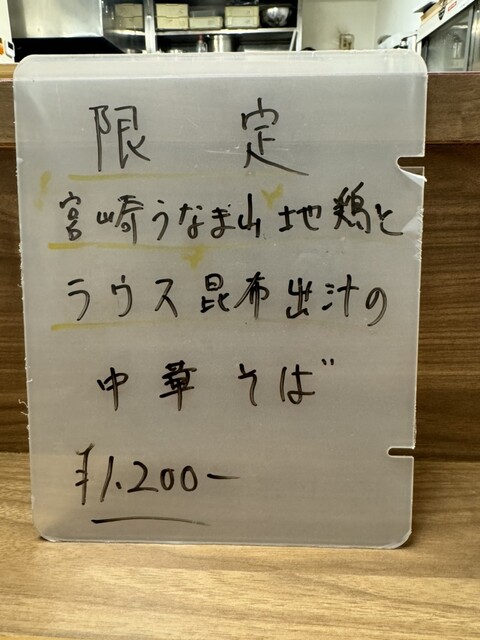 限定
宮崎うなま山地鶏と
ラウス昆布出汁の
中華そば
¥1.200-